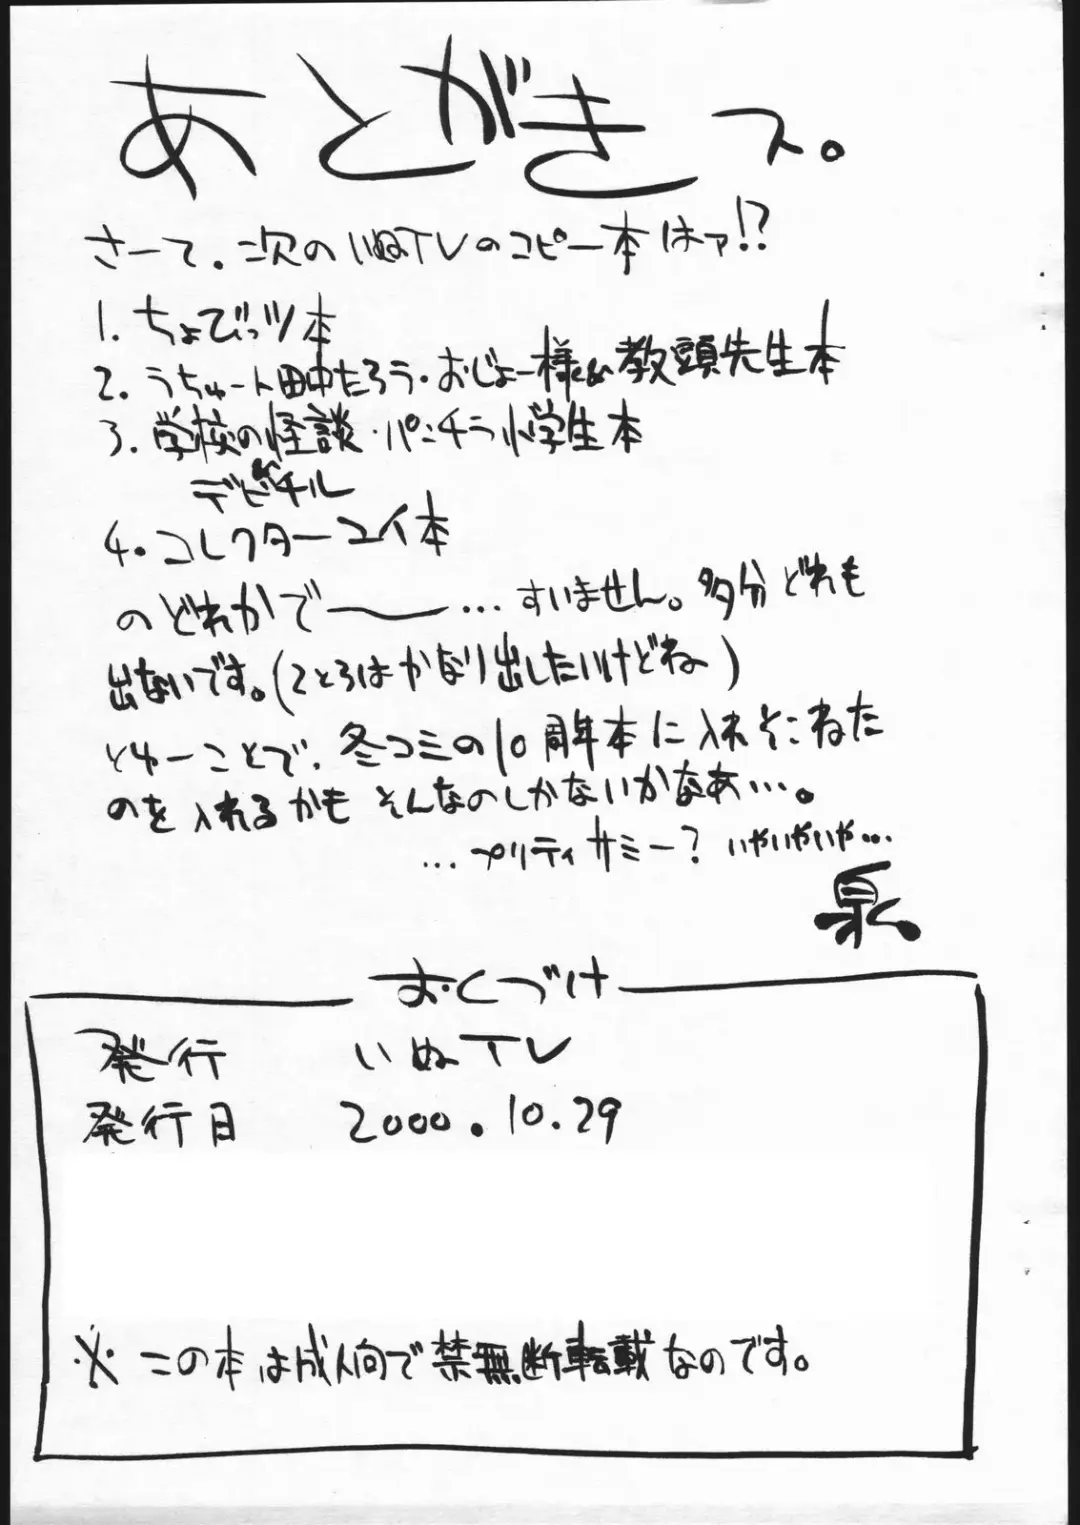 あとがきス。
さーて、次のいぬTVのコピー本はァ!?
1. ちょびっツ本
2. うちゅー人田中たろう・おじょー様&教頭先生本
3. 学校の怪談・パンチラ小学生本
デビチル
4. コレクターユイ本
のどれかで――…すいません。多分どれも
出ないです。(2と3はかなり出したいけどね)
とゆーことで、冬コミの10周年本に入れそこねた
のを入れるかもそんなのしかないかなあ…。
…プリティサミー? いやいやいや…
泉
おくづけ
発行 いぬTV
発行日 2000.10.29
※この本は成人向で禁無断転載なのです。